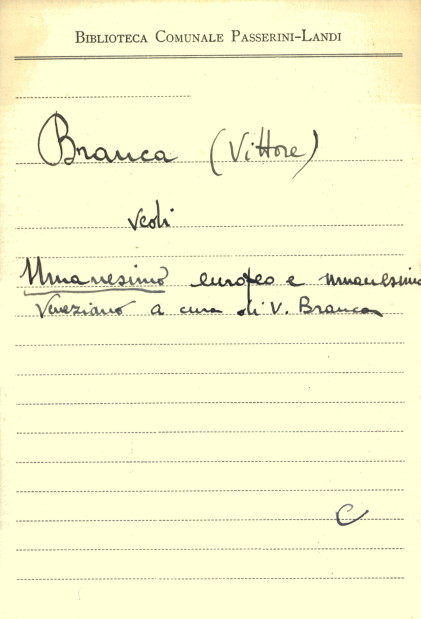 BIBLIOTECA COMUNALE PASSERINI-LANDI
Branca (Vittore)
vedi
Umanesimo europeo e umanesimo
Veneziano a cura di V. Branca
C